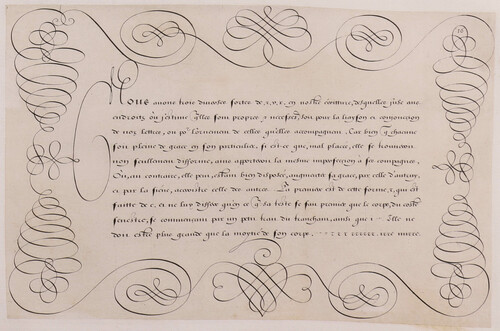 16
Nous avons trois diverses sortes de, s, v, x, en nostre escriture, desquelles juste aux
endroits ou j'estime qu'elles sont propres & necess.res, soit pour la liayson et conjonction
de noz lettres, ou po.r l'ornement de celles qu'elles accompagnent. Car bien q chacune
soit pleine de grace en son particulier, si est-ce que, mal placée, elle se trouvera
non seullement difforme, ains apportera la mesme imperfection a sa compagne;
Ou, au contraire, elle peut, estant bien disposée, augmenter sa grace, par celle d'autruy,
et par la sienne, accroistre celle des autres. La premiere est de cette forme, s, qui est
faitte de c, et ne luy differe qu'en ce q sa teste se fait premier, que le corps, du costé
senestre, se commençant par un petit trait du tranchant, ainsi que Elle ne
doit estre plus grande que la moytié de son corps,